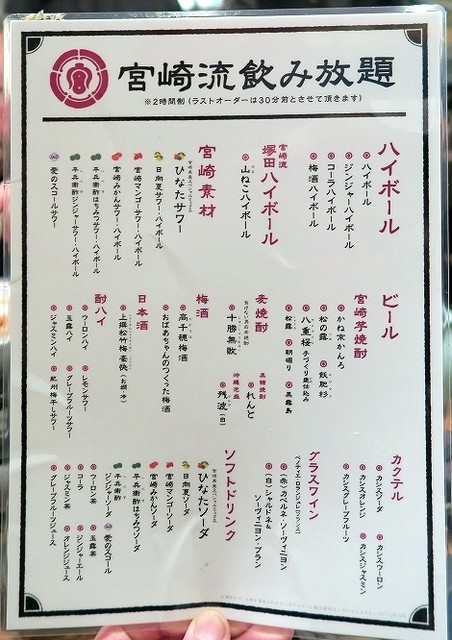 宮崎流飲み放題
※2時間制（ラストオーダーは30分前とさせて頂きます）
ハイボール
ハイボール
ジンジャーハイボール
コーラハイボール
梅酒ハイボール
宮崎流
塚田ハイボール
山ねこハイボール
宮崎素材
ひなたサワー
日向夏サワー・ハイボール
宮崎マンゴーサワー・ハイボール
宮崎みかんサワー・ハイボール
平兵衛酢はちみつサワー・ハイボール
平兵衛酢ジンジャーサワー・ハイボール
愛のスコールサワー
ビール
宮崎芋焼酎
かね京かんろ
松の露
飫肥杉
八重桜 手づくり甕仕込み
松露
朝堀り
黒霧島
麦焼酎
十勝無敗
黒糖焼酎
れんと
沖縄泡盛
残波（白）
梅酒
高千穂梅酒
おばあちゃんのつくった梅酒
日本酒
上撰松竹梅豪快（お燗・冷）
酎ハイ
ウーロンハイ
レモンサワー
玉露ハイ
グレープフルーツサワー
ジャスミンハイ
紀州梅干しサワー
カクテル
カシスソーダ
カシスウーロン
カシスオレンジ
カシスジャスミン
カシスグレープフルーツ
グラスワイン
（赤）カベルネ・ソーヴィニヨン
（白）シャルドネ&
ソーヴィニヨン・ブラン
ソフトドリンク
ひなたソーダ
日向夏ソーダ
宮崎マンゴーソーダ
宮崎みかんソーダ
平兵衛酢はちみつソーダ
平兵衛酢
ジンジャーソーダ
愛のスコール
ウーロン茶
玉露茶
コーラ
ジンジャーエール
ジャスミン茶
オレンジジュース
グレープフルーツジュース